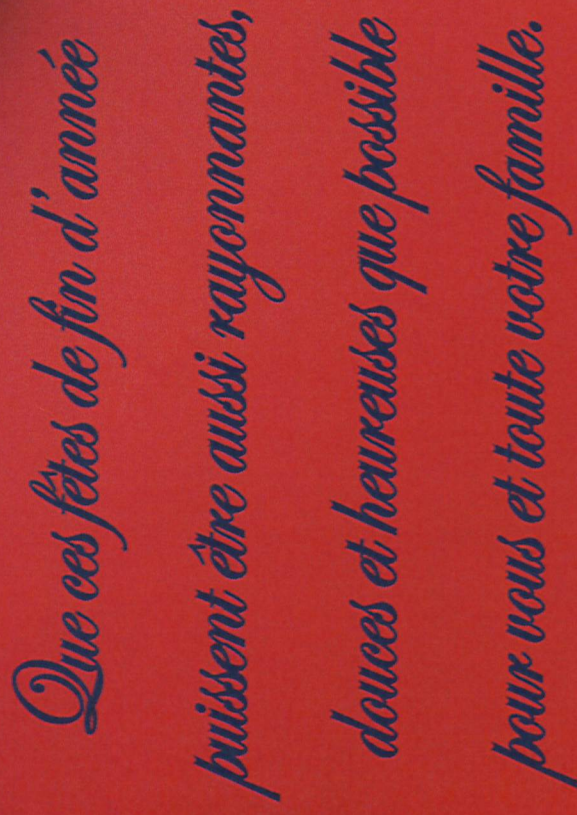 Que ces fêtes de fin d'année
puissent être aussi rayonnantes,
douces et heureuses que possible
pour vous et toute votre famille.